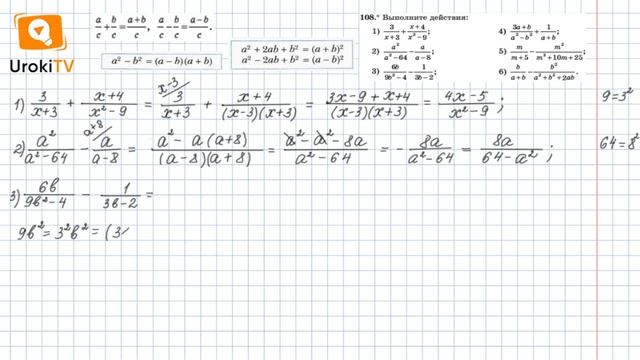 UrokiTV
a/c + b/c = (a+b)/c, a/c - b/c = (a-b)/c.
a² - b² = (a - b)(a + b)
a² + 2ab + b² = (a + b)²
a² - 2ab + b² = (a - b)²
108.* Выполните действия:
1) 3/(x+3) + (x+4)/(x²-9);
2) a²/(a²-64) - a/(a-8);
3) 6b/(9b²-4) - 1/(3b-2);
4) (3a+b)/(a²-b²) + 1/(a+b);
5) m/(m+5) - m²/(m²+10m+25);
6) b/(a+b) - b²/(a²+b²+2ab).
1) 3/(x+3) + (x+4)/(x²-9) = 3^(x-3)/(x+3) + (x+4)/((x-3)(x+3)) = (3x-9+x+4)/((x-3)(x+3)) = (4x-5)/(x²-9); 9=3²
2) a²/(a²-64) - a^(a+8)/(a-8) = (a²-a(a+8))/((a-8)(a+8)) = (a²-a²-8a)/(a²-64) = -8a/(a²-64) = 8a/(64-a²); 64=8²
3) 6b/(9b²-4) - 1/(3b-2) =
9b² = 3²b² = (3